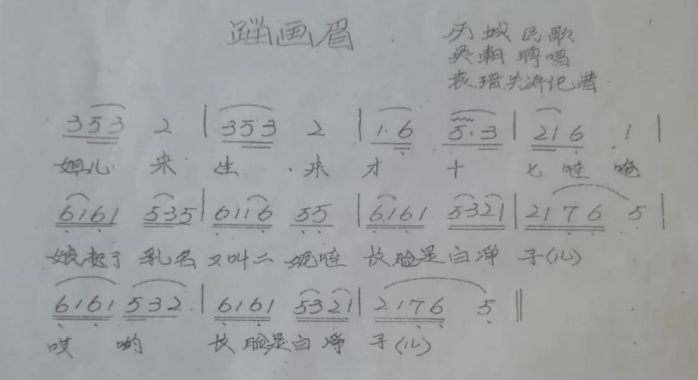 蹓画眉
历城民歌
吴朝聘唱
袁瑨 记谱
353 2 | 353 2 | 1·6 5·3 | 216 1 |
姐儿 来 生 来 才 十 七 哇 咹
6161 535 | 6116 55 | 6161 5321 | 2176 5 |
娘起了 乳名 又叫二 妮哇 长脸是白净 子(儿)
6161 532 | 6161 5321 | 2176 5 ‖
哎 哟 长脸是白净 子(儿)